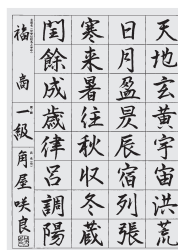 天地玄黄宇宙洪荒
日月盈昃辰宿列張
寒来暑往秋収冬蔵
閏餘成歳律呂調陽
福岡一級角屋咲良